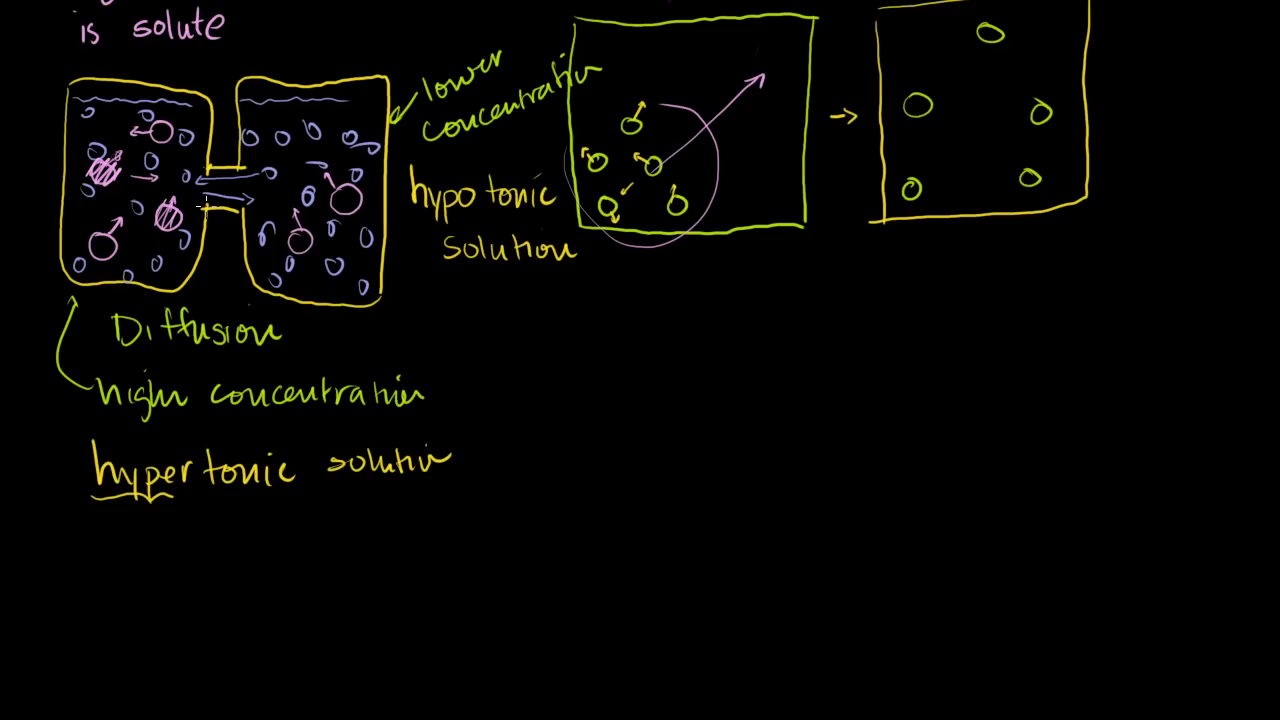 is solute
lower
concentration
hypotonic
solution
Diffusion
high concentration
hypertonic solution